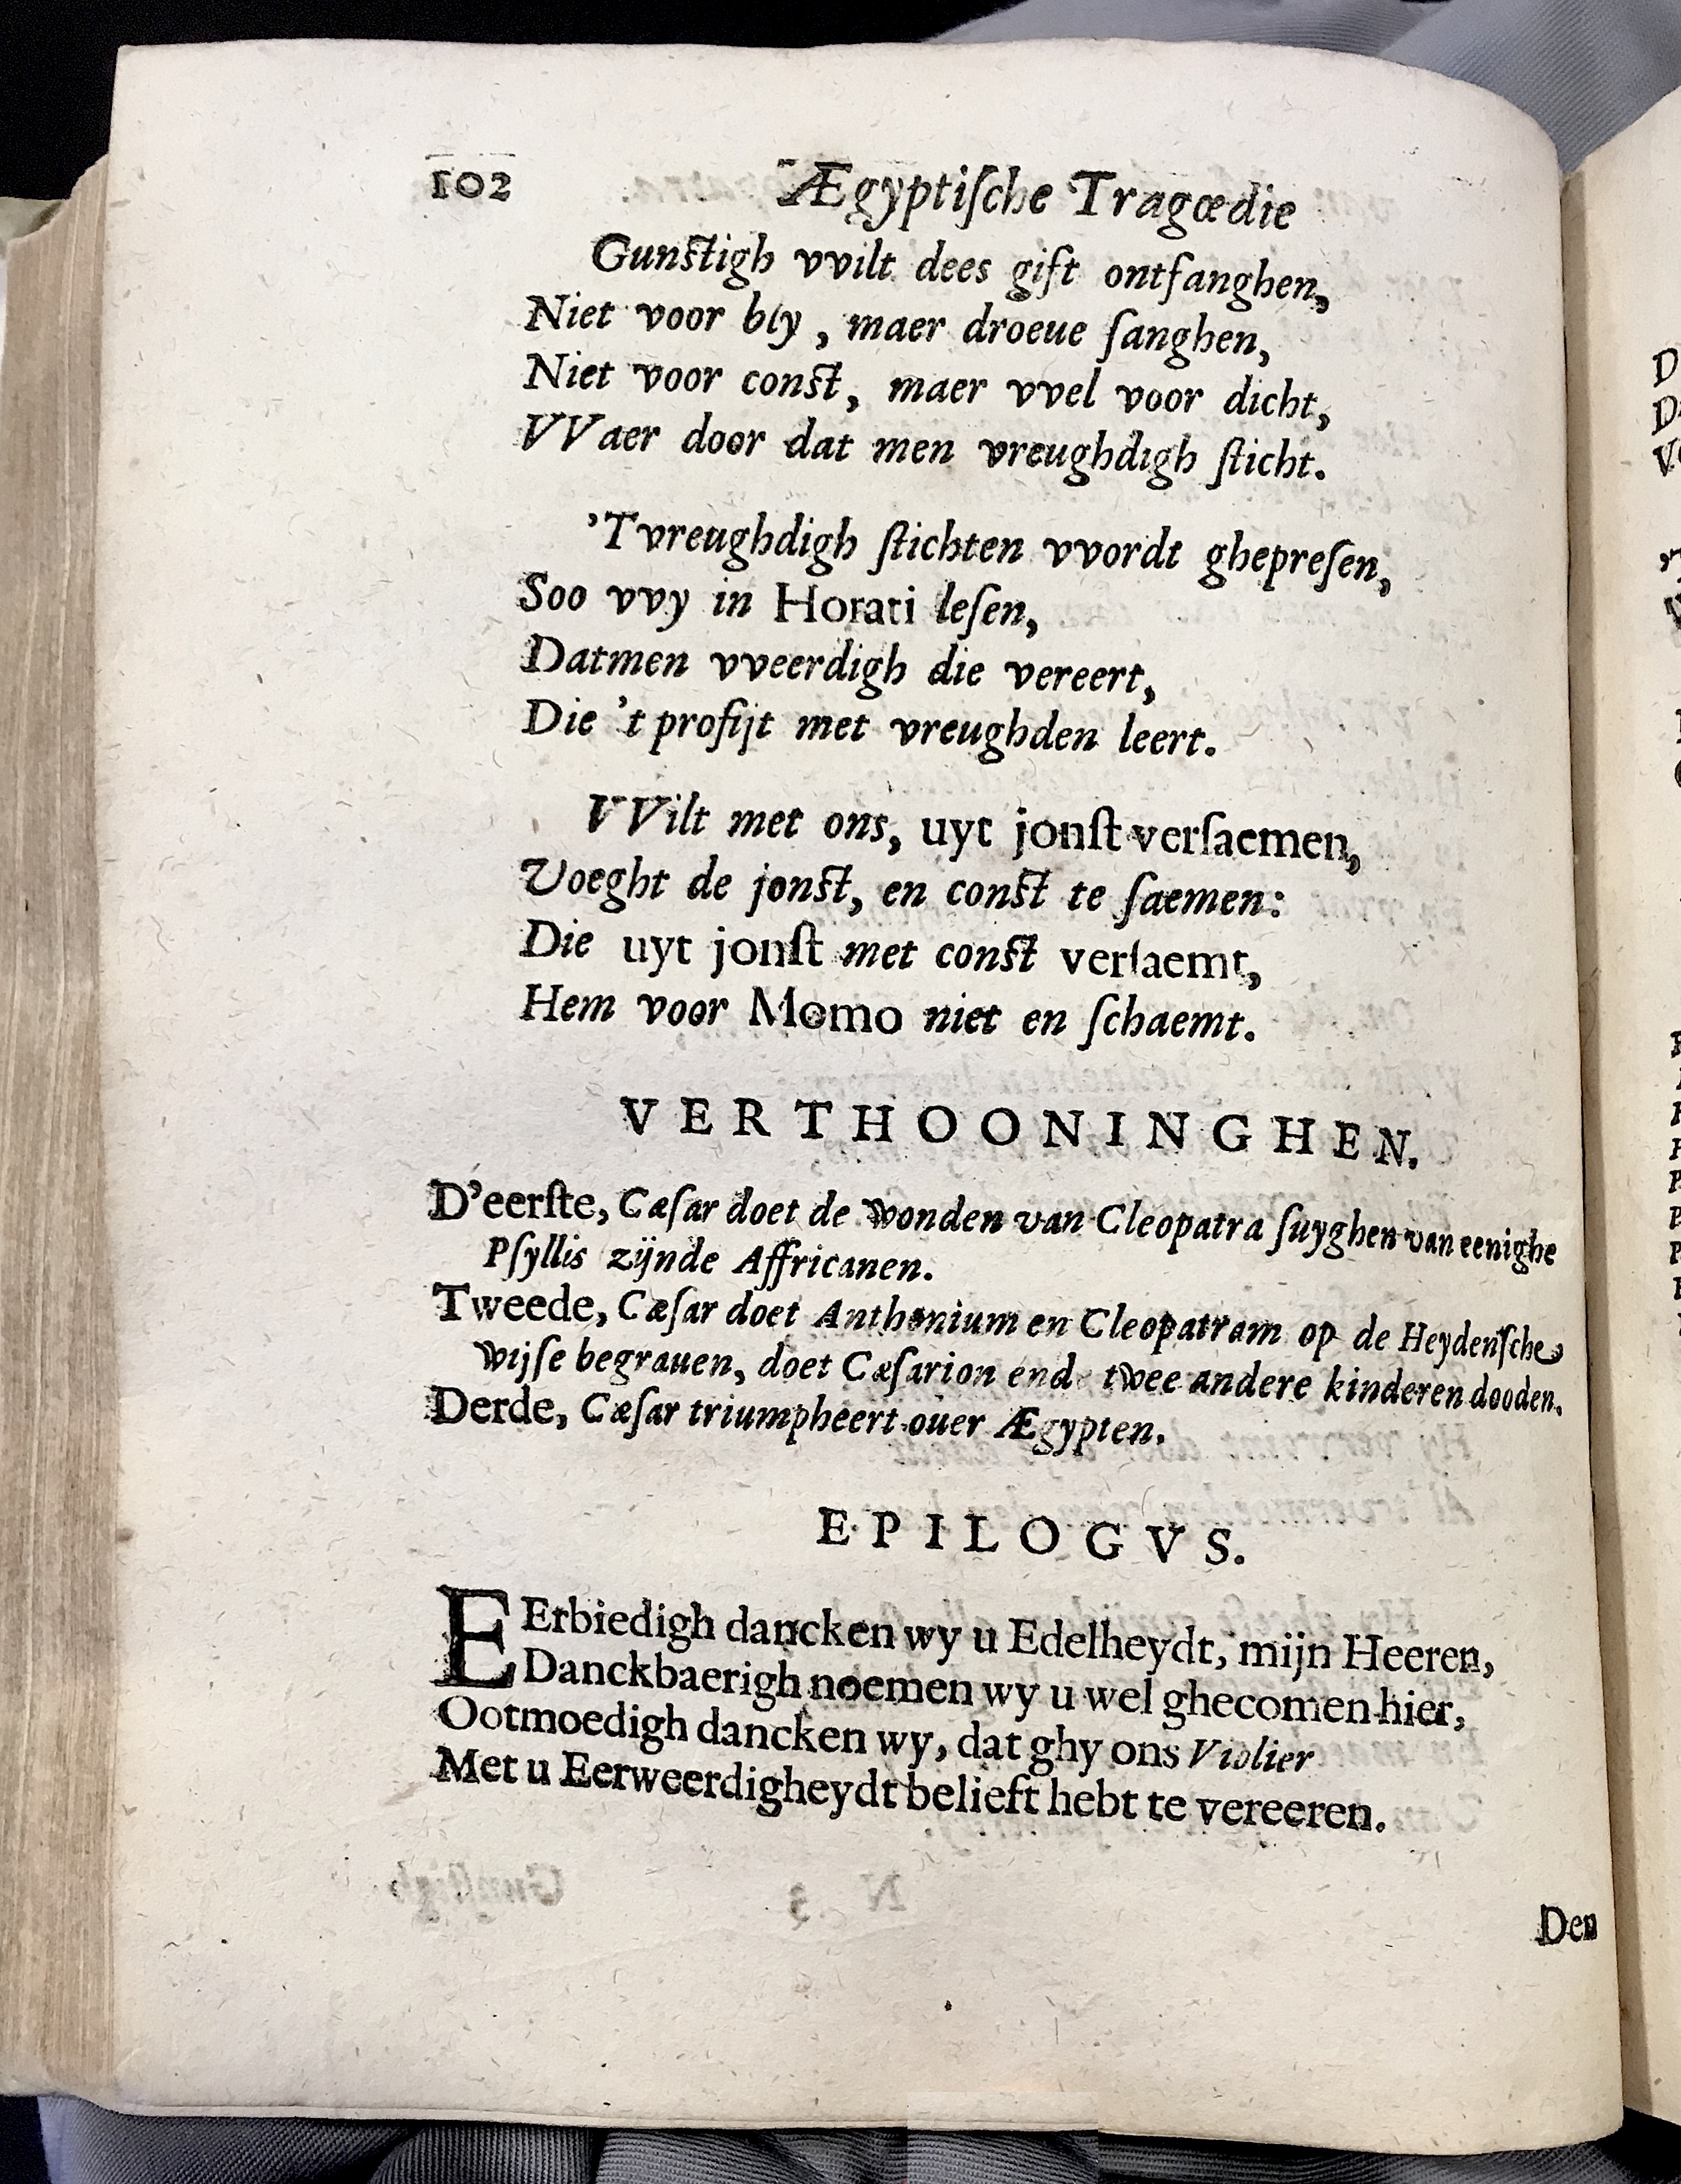 102 Ægyptiſche Tragœdie
Gunſtigh vvilt dees gift ontfanghen,
Niet voor bly, maer droeue ſanghen,
Niet voor conſt, maer vvel voor dicht,
VVaer door dat men vreughdigh ſticht.
'Tvreughdigh ſtichten vvordt ghepreſen,
Soo vvy in Horati leſen,
Datmen vveerdigh die vereert,
Die 't profijt met vreughden leert.
VVilt met ons, uyt jonſt verſaemen,
Voeght de jonſt, en conſt te ſaemen:
Die uyt jonſt met conſt verſaemt,
Hem voor Momo niet en ſchaemt.
VERTHOONINGHEN.
D'eerſte, Cæſar doet de wonden van Cleopatra ſuyghen van eenighe
Pſyllis zijnde Affricanen.
Tweede, Cæſar doet Anthonium en Cleopatram op de Heydenſche
wijſe begrauen, doet Cæſarion ende twee andere kinderen dooden.
Derde, Cæſar triumpheert ouer Ægypten.
EPILOGVS.
EErbiedigh dancken wy u Edelheydt, mijn Heeren,
Danckbaerigh noemen wy u wel ghecomen hier,
Ootmoedigh dancken wy, dat ghy ons Violier
Met u Eerweerdigheydt belieft hebt te vereeren.
Den